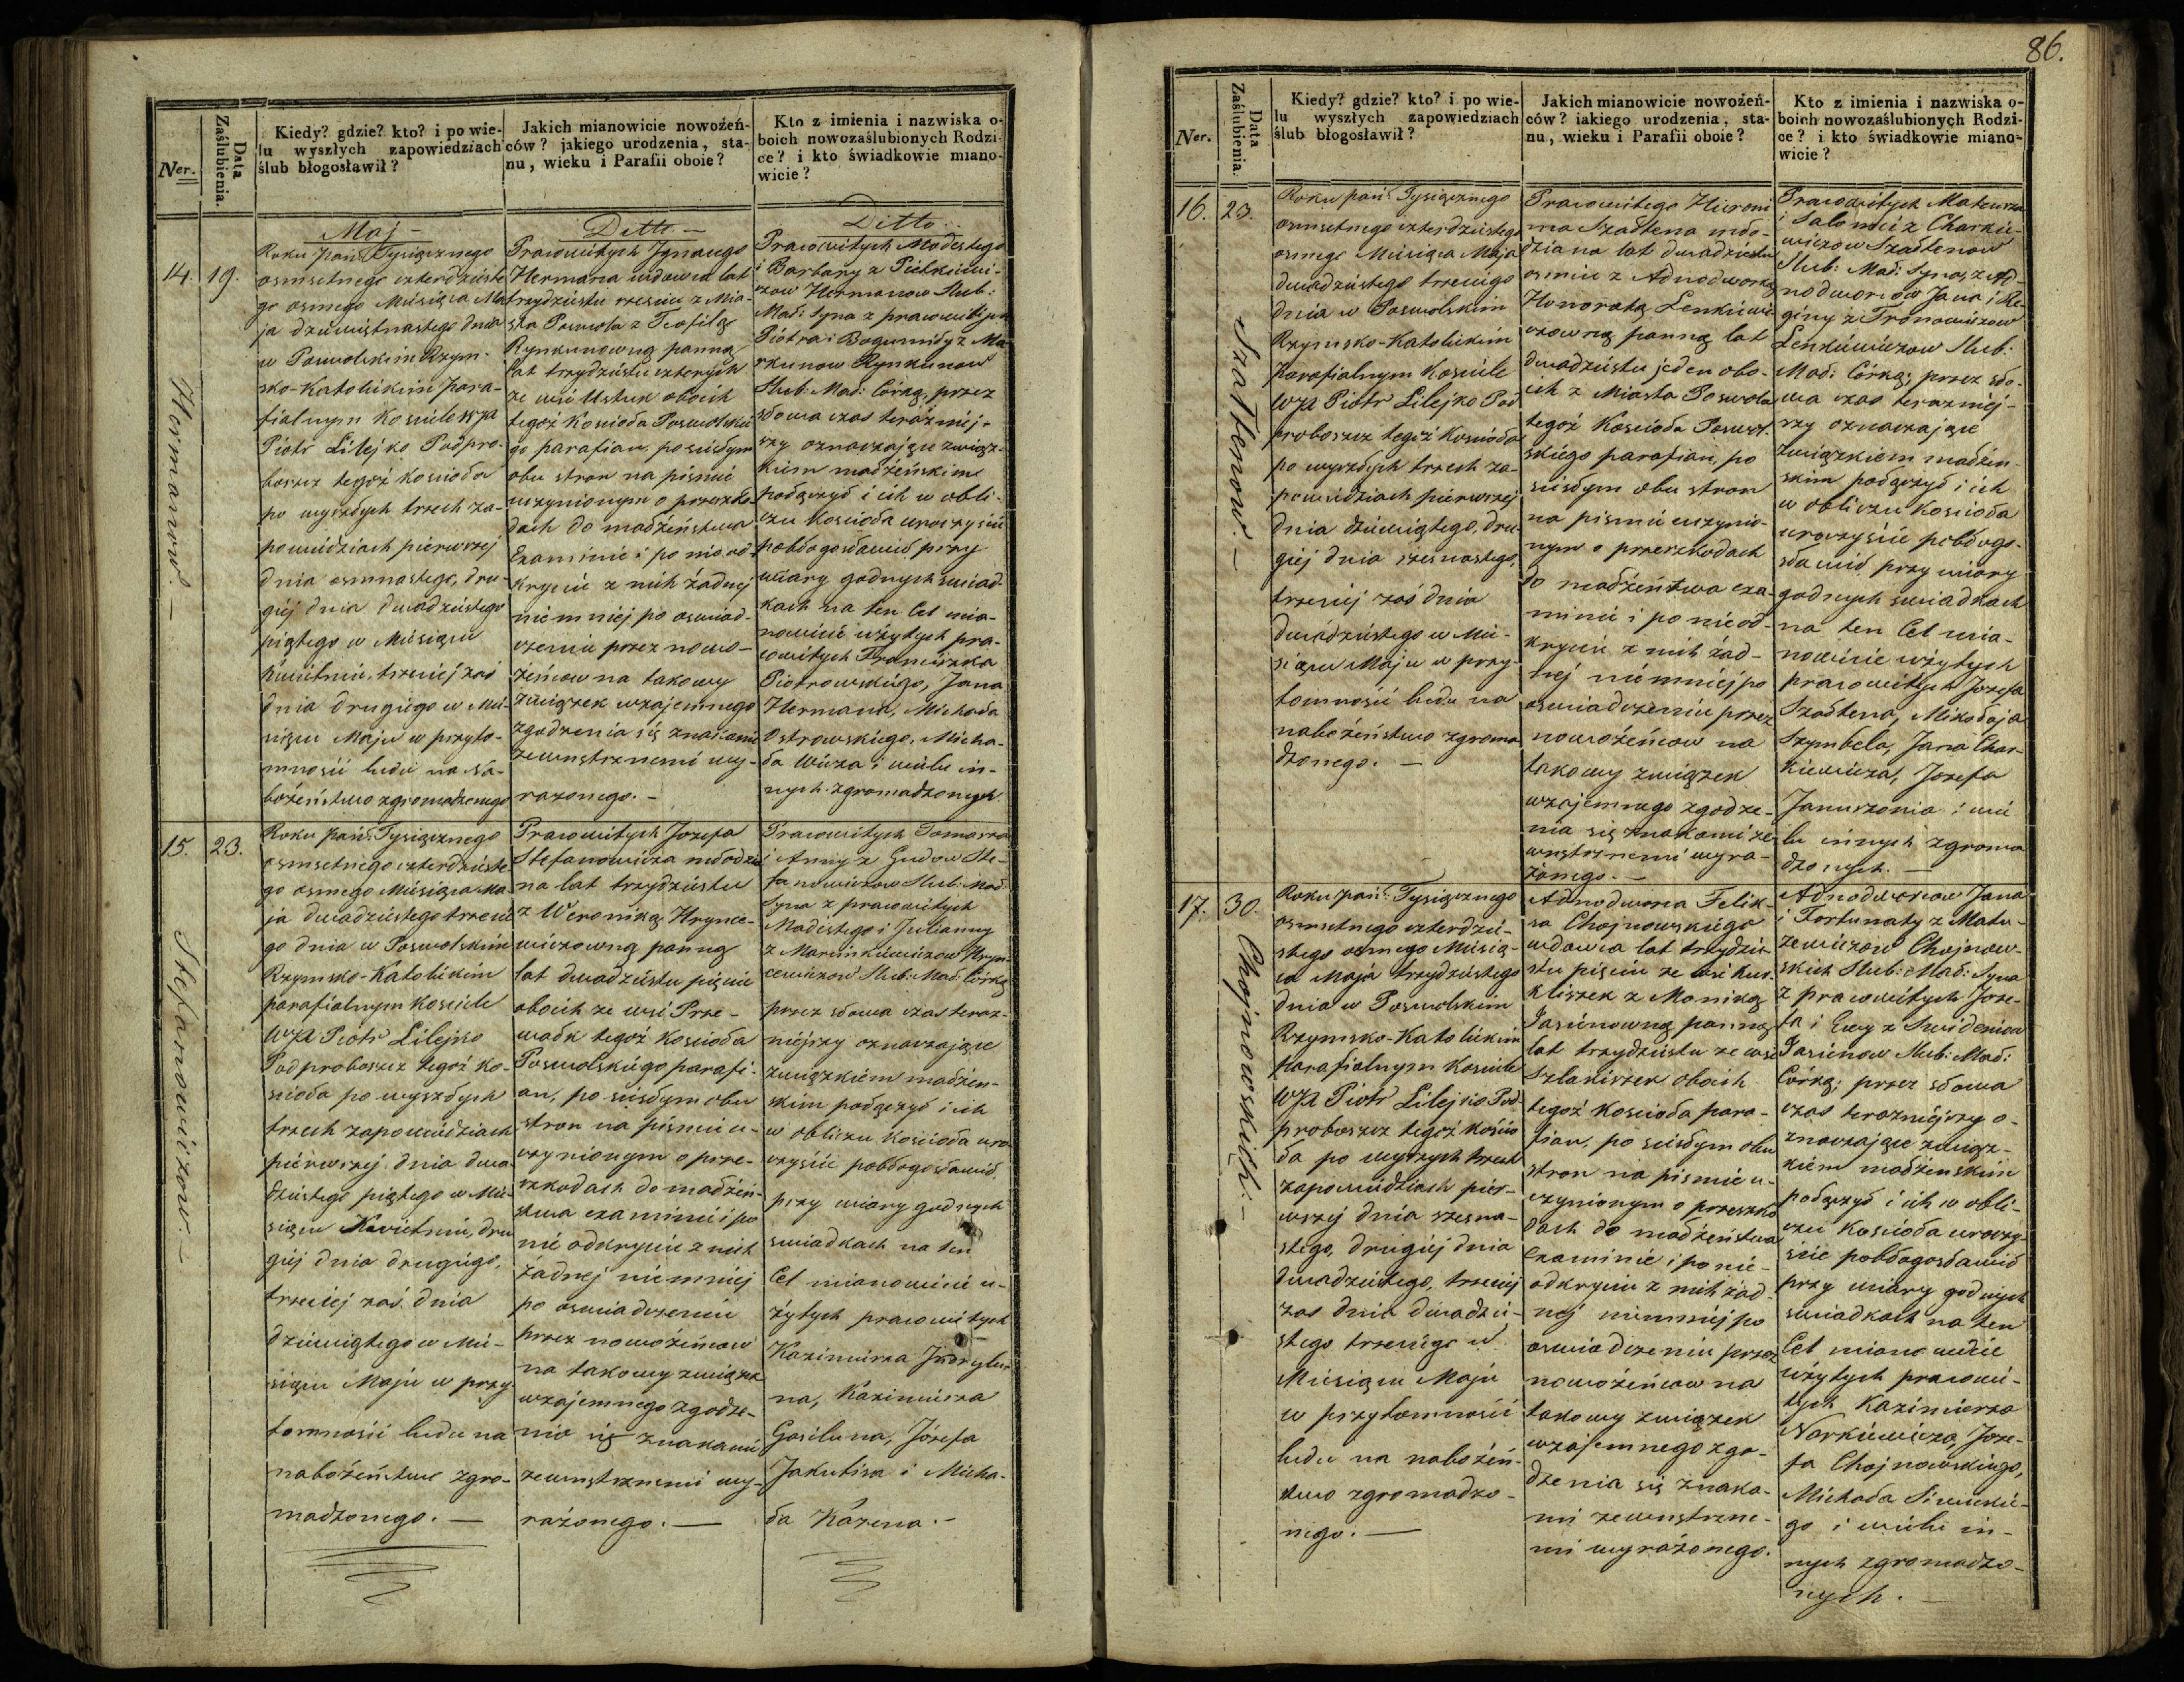 86.
Ner.
Data Zaślubienia.
Kiedy? gdzie? kto? i po wie-
lu wyszłych zapowiedziach
ślub błogosławił?
Jakich mianowicie nowożeń-
ców? jakiego urodzenia, sta-
nu, wieku i Parafii oboie?
Kto z imienia i nazwiska o-
boich nowozaślubionych Rodzi-
ce? i kto świadkowie miano-
wicie?
14.
19.
Hermanow. —
Maj —
Roku Pań: Tysiącznego
osmsetnego czterdzieste
go osmego Miesiąca Ma
ja dziewiętnastego dnia
w Poswolskim Rzym-
sko-Katolickim para-
fialnym Kosciele WJX
Piotr Lilejko Podpro-
boszcz tegoż Koscioła
po wyszłych trzech za-
powiedziach pierwszej
dnia osmnastego, dru-
giéj dnia dwadziestego
piątego w Miesiącu
Kwietniu, trzeciéj zaś
dnia drugiego w Mie-
siącu Maju w przyto-
mności ludu na na-
bożeństwo zgromadzonego
Ditto —
Pracowitych Jgnacego
Hermana wdowca lat
trzydziestu szesciu z Mia-
sta Poswola z Teofilą
Rynkunowną panną
lat trzydziestu czterych
ze wsi Ustuk oboich
tegoż Koscioła Poswolskie
go parafian, po scisłym
obu stron na pismie
uczynionym o przeszko
dach do małżeństwa
Examinie i po nieod-
kryciu z nich żadnej
niemniéj po oswiad-
czeniu przez nowo-
żeńcow na takowy
związek wzajemnego
zgodzenia się znakami
zewnętrznemi wy-
rażonego. —
Ditto
Pracowitych Modestego
i Barbary z Pietkiewi-
czow Hermanow Slub:
Mał: Syna z pracowitych
Piotra i Bogumiły z Ma
rkunow Rynkunow
Slub: Mał: Córką, przez
słowa czas teraźniéj-
szy oznaczające związ-
kiem małżeńskim
połączył i ich w obli-
czu Koscioła uroczyscie
pobłogosławił przy
wiary godnych swiad-
kach na ten Cel mia-
nowicie użytych pra-
cowitych Franciszka
Piotrowskiego, Jana
Hermana, Michała
Ostrowskiego, Micha-
ła Wicza i wielu in-
nych zgromadzonych
15.
23.
Stefanowiczow. —
Roku Pań: Tysiącznego
osmsetnego czterdzieste
go osmego Miesiąca Ma
ja dwadziestego trzecie
go dnia w Poswolskim
Rzymsko-Katolickim
parafialnym Kosciele
WJX Piotr Lilejko
Podproboszcz tegoż Ko-
scioła po wyszłych
trzech zapowiedziach
pierwszej dnia dwa-
dziestego piątego w Mie-
siącu Kwietniu, dru
giéj dnia drugiego,
trzeciej zaś dnia
dziewiątego w Mie-
siącu Maju w przy
tomności ludu na
nabożeństwo zgro-
madzonego. —
Pracowitych Jozefa
Stefanowicza młodzie
na lat trzydziestu
z Weroniką Hrynce-
wiczowną panną
lat dwadziestu pięciu
oboich ze wsi Prze-
wałk tegoż Koscioła
Poswolskiego parafi-
an, po scisłym obu
stron na pismie u-
czynionym o prze-
szkodach do małżeń-
stwa examinie i po
nie odkryciu z nich
żadnej niemniej
po oswiadczeniu
przez nowożeńcow
na takowy związek
wzajemnego zgodze-
nia się znakami
zewnętrznemi wy-
rażonego. —
Pracowitych Tomasza
i Anny z Gudow Ste-
fanowiczow Slub: Mał:
Syna z pracowitych
Modestego i Julianny
z Marcinkiewiczow Hryn-
cewiczow Slub: Mał: Córką
przez słowa czas teraz-
niéjszy oznaczające
związkiem małżen-
skim połączył i ich
w obliczu Koscioła uro
czyście pobłogosławił,
przy wiary godnych
swiadkach na ten
Cel mianowicie u-
żytych pracowitych
Kazimierza
na, Kazimierza
Gasiluna, Józefa
Jakubisa i Micha-
ła Kazena. —
Ner.
Data Zaślubienia.
Kiedy? gdzie? kto? i po wie-
lu wyszłych zapowiedziach
ślub błogosławił?
Jakich mianowicie nowożeń-
ców? iakiego urodzenia, sta-
nu, wieku i Parafii oboie?
Kto z imienia i nazwiska o-
boich nowozaślubionych Rodzi-
ce? i kto świadkowie miano-
wicie?
16.
23.
Szałtenow. —
Roku pań: Tysiącznego
osmsetnego czterdziestego
osmego Miesiąca Maja
dwadziestego trzeciego
dnia w Poswolskim
Rzymsko-Katolickim
Parafialnym Kosciele
WJX Piotr Lilejko Pod
proboszcz tegoż Koscioła
po wyszłych trzech za-
powiedziach pierwszej
dnia dziewiątego, dru-
giéj dnia szesnastego,
trzeciej zaś dnia
dwadziestego w Mie-
siącu Maju w przy-
tomności ludu na
nabożeństwo zgroma
dzonego. —
Pracowitego Hieroni
ma Szałtena mło-
dziana lat dwadziestu
osmiu z Adnodworką
Honoratą Lenkiewi
czowną panną lat
dwadziestu jeden obo-
ich z Miasta Poswola
tegoż Koscioła Poswol-
skiego parafian, po
scisłym obu stron
na pismie uczynio-
nym o przeszkodach
do małżeństwa exa-
minie i po nieod-
kryciu z nich żad-
nej niemniej po
oswiadczeniu przez
nowożeńcow na
takowy związek
wzajemnego zgodze-
nia się znakami ze
wnętrznemi wyra-
żonego. —
Pracowitych Mateusza
i Salomei z Charkie-
wiczow Szałtenow
Slub: Mał: Syna, z Ad
nodworcow Jana i Re
giny z Tronowiczow
Lenkiewiczow Slub:
Mał: Córką; przez sło-
wa czas terazniéj-
szy oznaczające
związkiem małżen-
skim połączył i ich
w obliczu Koscioła
uroczyście pobłogo-
sławił przy wiary
godnych swiadkach
na ten Cel mia-
nowicie użytych
pracowitych Jozefa
Szałtena, Mikołaja
Szymbela, Jana Char-
kiewicza, Jozefa
Januszonia i wie
lu innych zgroma
dzonych. —
17.
30.
Chojnowskich. —
Roku pań: Tysiącznego
osmsetnego czterdzie-
stego osmego Miesią-
ca Maja trzydziestego
dnia w Poswolskim
Rzymsko-Katolickim
parafialnym Kosciele
WJX Piotr Lilejko Pod-
proboszcz tegoż Koscio
ła po wyszłych trzech
zapowiedziach pier-
wszej dnia szesna-
stego, drugiéj dnia
dwadziestego, trzeciéj
zas dnia dwadzie-
stego trzeciego w
Miesiącu Maju
w przytomności
ludu na nabożeń-
stwo zgromadzo-
nego. —
Adnodworca Felik-
sa Chojnowskiego
wdowca lat trzydzie-
stu pięciu ze wsi Kur-
kliszek z Moniką
Jasiunowną panną
lat trzydziestu ze wsi
Szlakiszek oboich
tegoż Koscioła para-
fian, po scisłym obu
stron na pismie u-
czynionym o przeszko
dach do małżeństwa
Examinie i po nie-
odkryciu z nich żad-
nej niemniéj po
oswiadczeniu przez
nowożeńcow na
takowy związek
wzajemnego zgo-
dzenia się znaka-
mi zewnętrzne-
mi wyrażonego.
Adnodworcow Jana
i Fortunaty z Matu-
zewiczow Chojnow-
skich Slub: Mał: Syna
z pracowitych Joze-
fa i Ewy z
Jasiunow Slub: Mał:
Córką; przez słowa
czas terazniéjszy o-
znaczające związ-
kiem małżenskim
połączył i ich w obli-
czu Koscioła uroczy-
scie pobłogosławił
przy wiary godnych
swiadkach na ten
Cel mianowicie
użytych pracowi-
tych Kazimierza
Narkiewicza, Joze-
fa Chojnowskiego,
Michała
go i wielu in-
nych zgromadzo-
nych. —